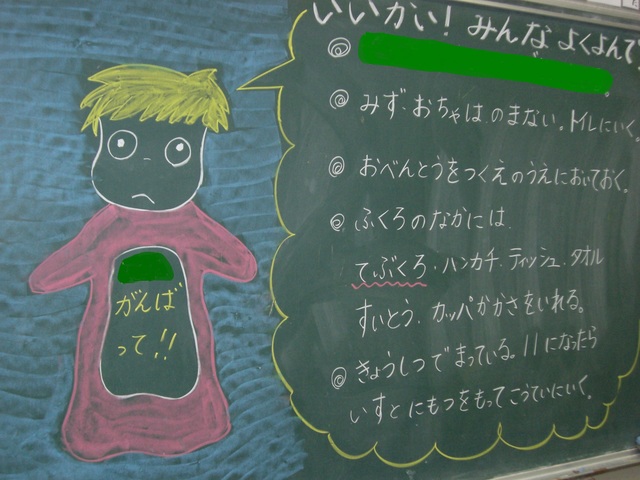 いいかい！みんなよくよんで
◎
◎みず・おちゃは、のまない。トイレにいく。
◎おべんとうをつくえのうえにおいておく。
◎ふくろのなかには、
てぶくろ・ハンカチ・ティッシュ・タオル
すいとう、カッパかかさをいれる。
◎きょうしつでまっている。11になったら
いすとにもつをもってこうていにいく。
がんば
って!!